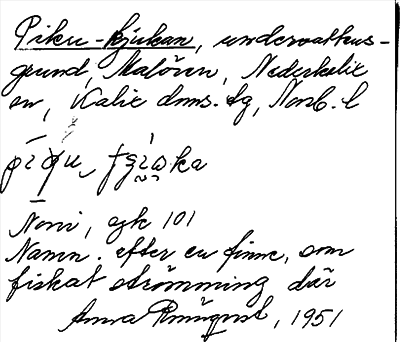 Piku-kjukan, undervattens-
grund, Malören, Nederkalix
sn, Kalix dms. tg, Norrb. l
Norri, egk 101
Namn. efter en finne, som
fiskat strömming där
Anna Rönnqvist, 1951